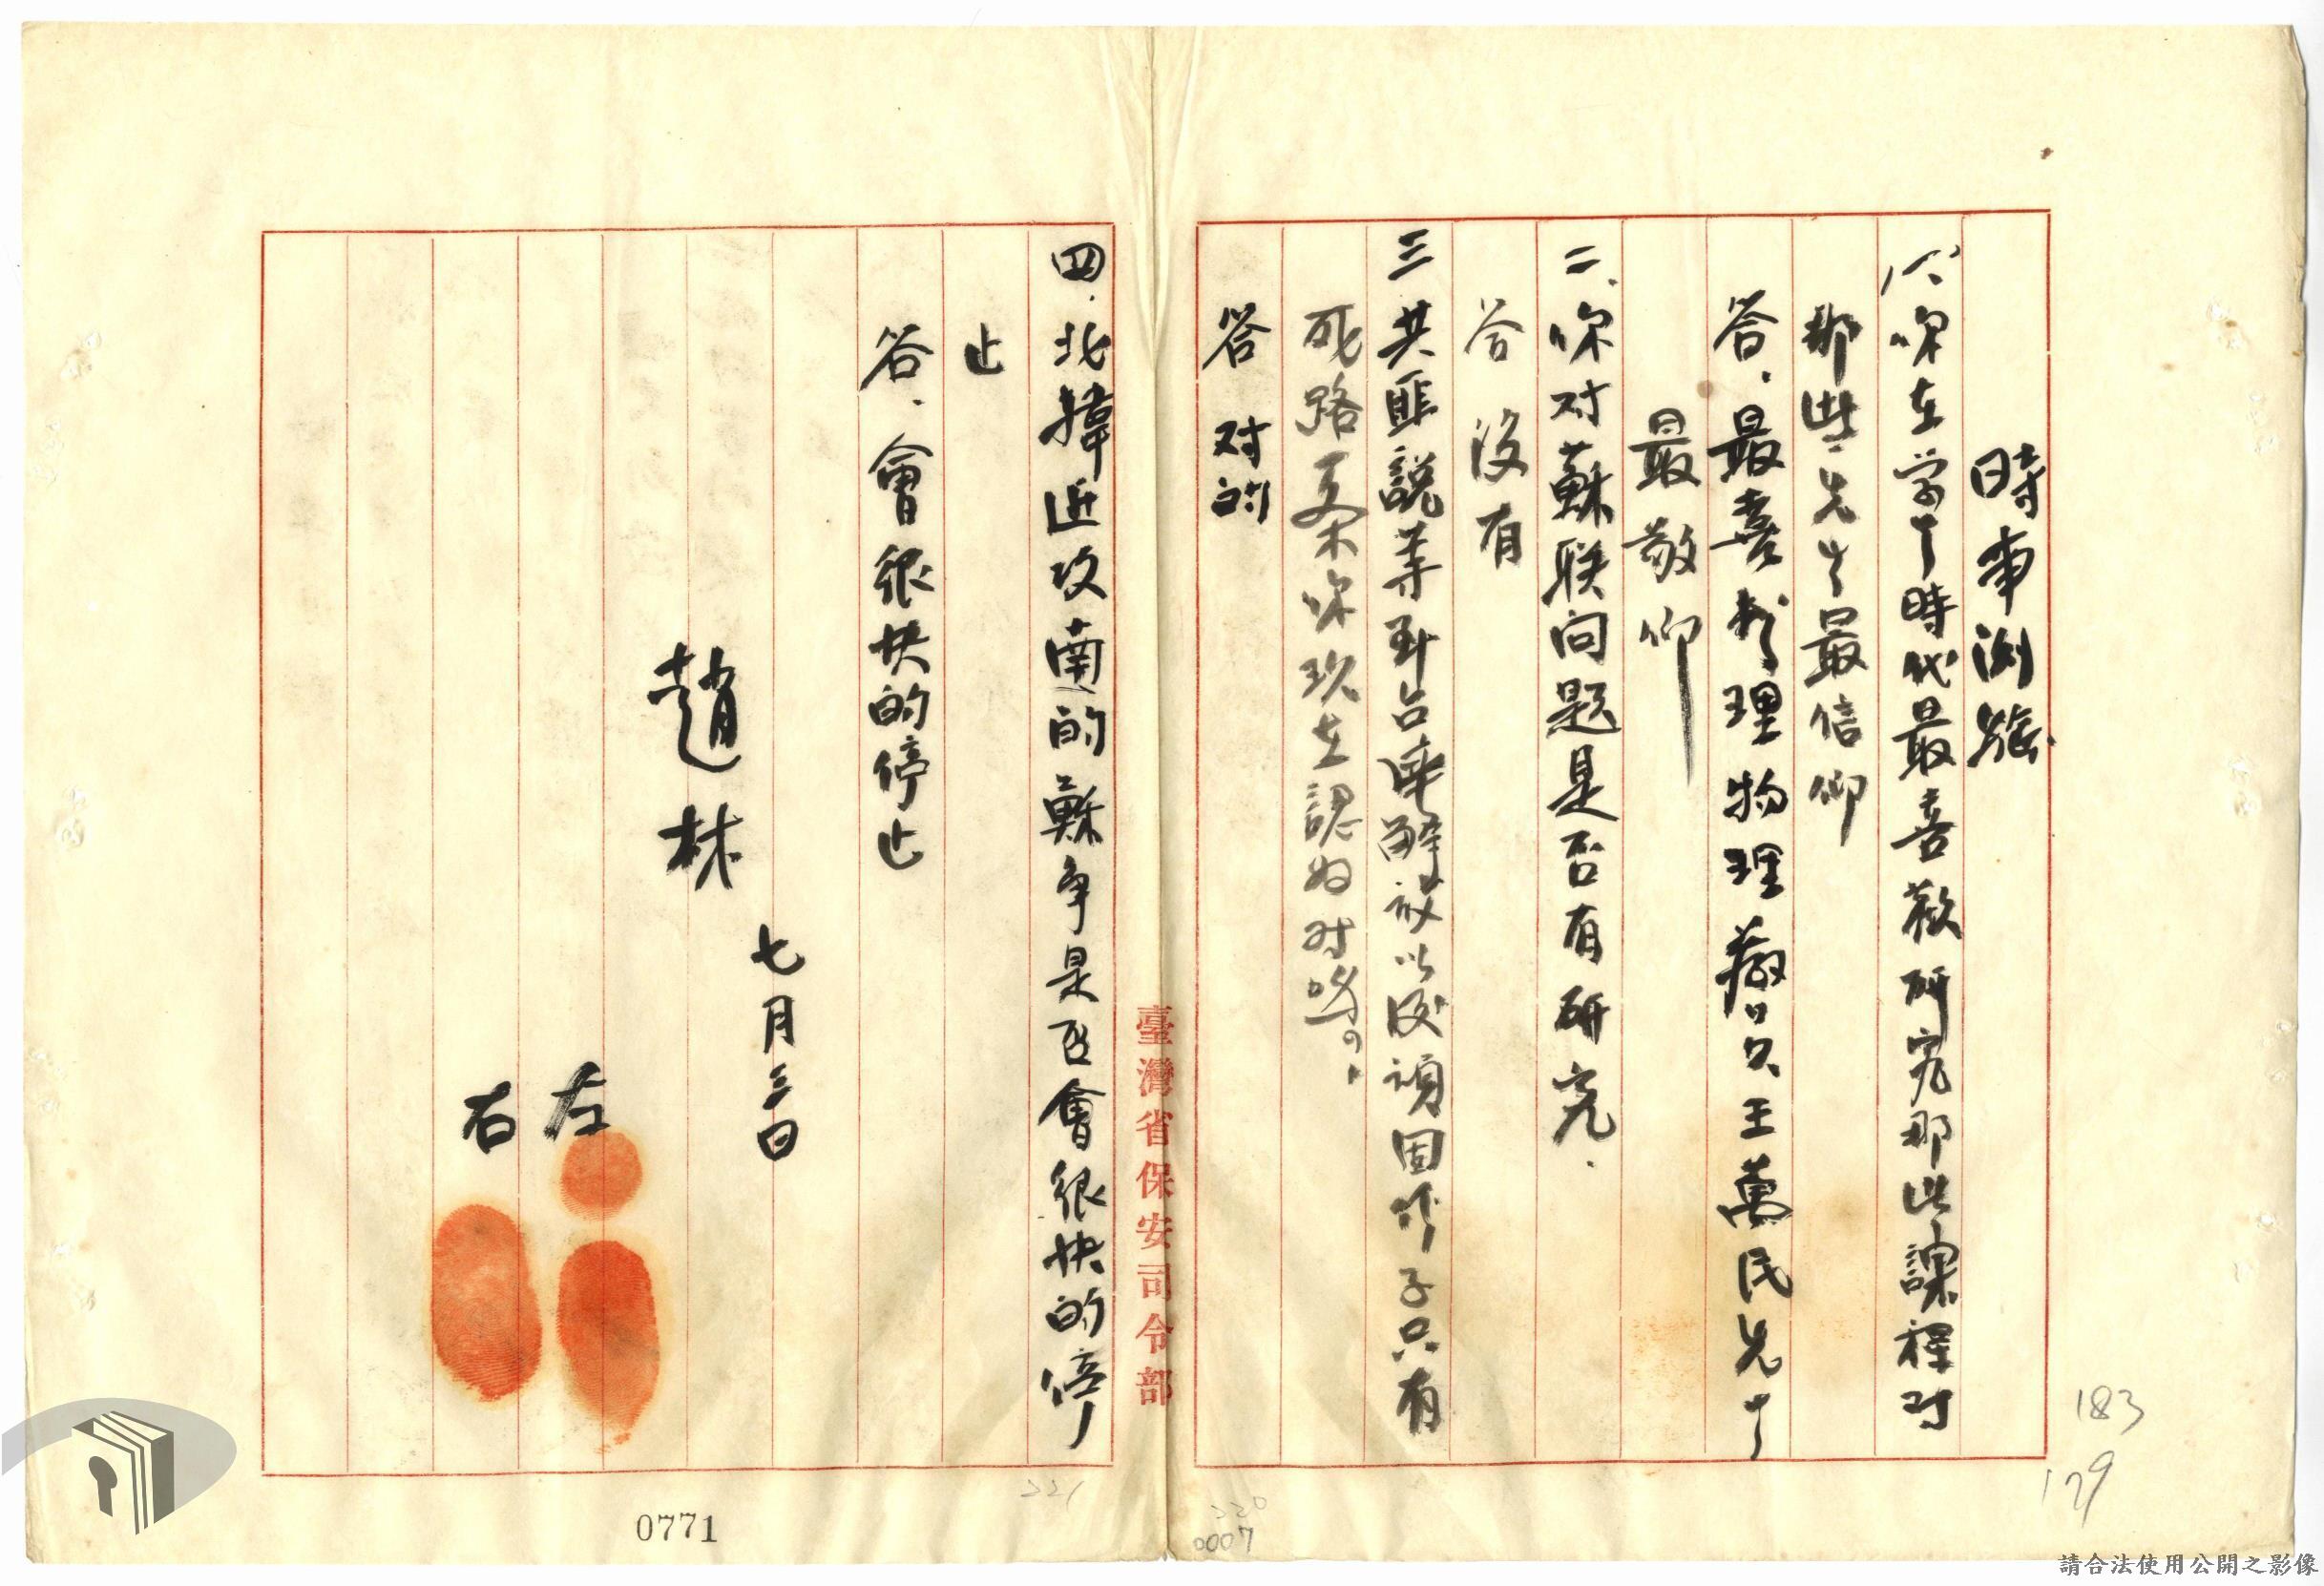 時事測驗
一、你在学生時代最喜歡研究那些課程对
那些先生最信仰
答．最喜地理物理 只王萬民先生
最敬仰
二、你对蘇联问題是否有研究．
答 没有
三 共匪説等到台湾解放以後頑固份子只有
死路一条你现在認为对嗎。
答 对的
臺灣省保安司令部
四．北韓進攻南的 争是否會很快的停
止
答．會很快的停止
七月三日
趙林
左
右
183
179
0771
321
320
0007
請合法使用公開之影像